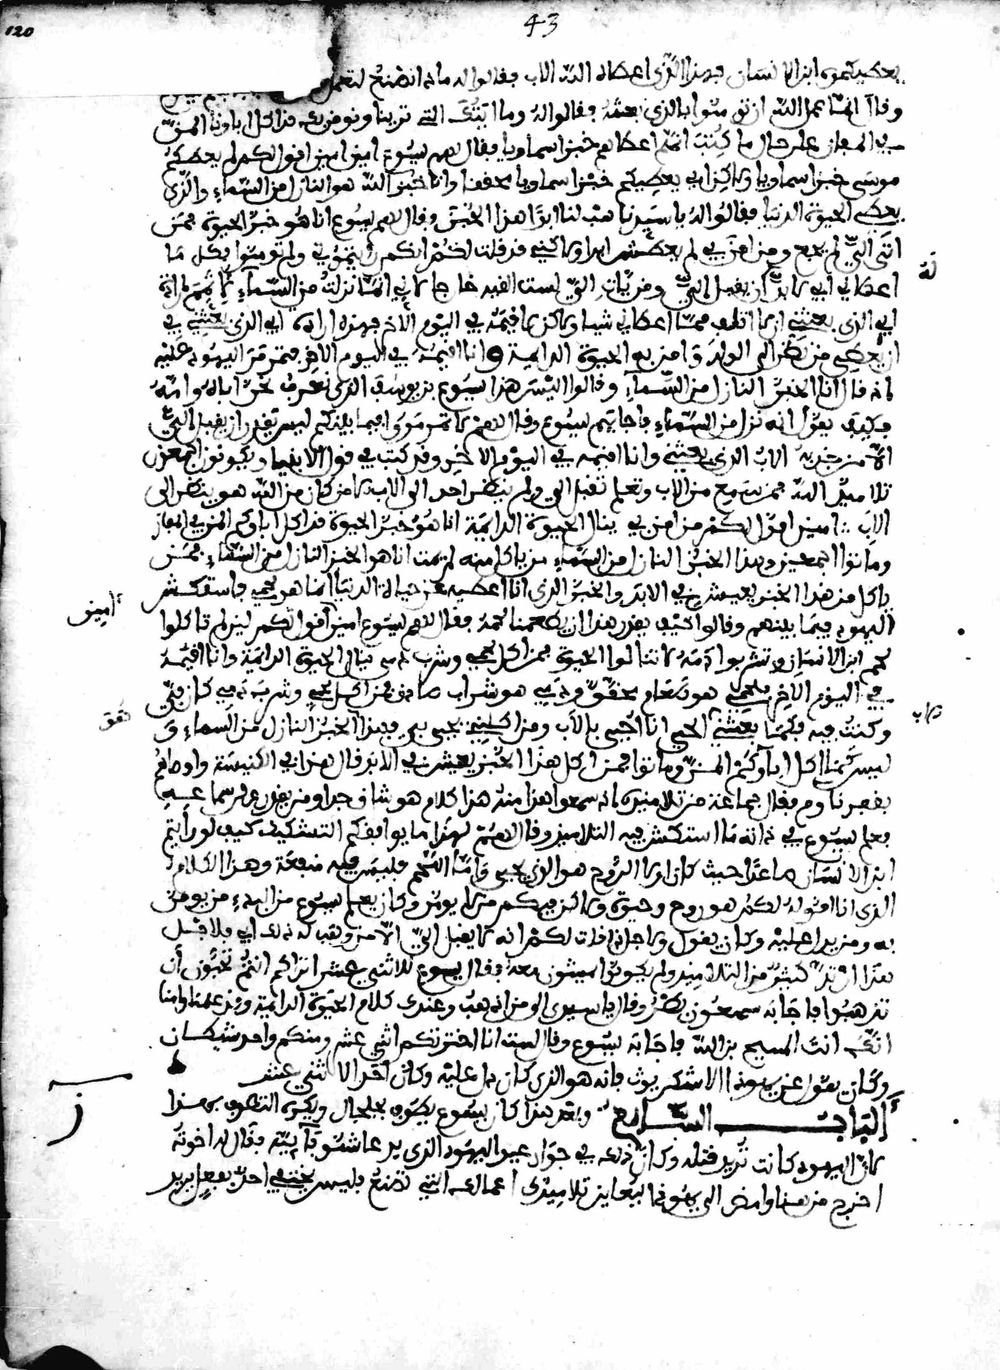 120
43
يعطيكموه ابن الانسان فهذا الذى اعطاه الله الاب فقالوا له ماذا نصنع لنعمل
وقال انما عمل الله ان تومنوا بالذى بعثه فقالوا له وما ايتك التى ترينا ونومن بك قد اكل اباونا المن
فى المفاز على حال ما كتبت انه اعطاهم خبزا سماويا فقال لهم يسوع امين امين اقول لكم لم يعطكم
موسى خبزا سماويا ولاكن ابى يعطيكم خبزا سماويا محققا وانما خبز الله هو النازل من السماء والذى
يعطى الحيوة الدنيا فقالوا له يا سيدنا هب لنا ابدا هذا الخبز وقال لهم يسوع انا هو خبز الحيوة فمن
اتى الى لم يجع ومن امن بى لم يعطش ابدا ولاكنى قد قلت لكم انكم رايتمونى ولم تومنوا بكل ما
له
اعطانى ابى لا بد ان يقبل الى ومن يات الى لست القيه خارجا لانى انما نزلت من السماء لا لتتم ارادة
ابى الذى بعثنى ان لا اتلف مما اعطانى شيا ولاكن لاقيمه فى اليوم الاخر فهذه ارادة ابى الذى بعثنى
ان يعطى من نظر الى الولد وامن به الحيوة الدايمة وانا اقيمه فى اليوم الاخر فتمرمر اليهود عليه
اذ قال انا الخبز النازل من السماء وقالوا اليس هذا يسوع بن يوسف الذى نعرف نحن اباه وامه
فكيف يقول انه نزل من السماء فاجابهم يسوع وقال لهم لا تمرمروا فيما بينكم ليس يقدر ان يقبل الى
الا من جذبه الاب الذى بعثنى وانا اقيمه فى اليوم الاخر وقد كتب فى قول الانبيا ويكونون اجمعون
تلاميذ الله فمن سمع من الاب وتعلم تقبل الى ولم ينظر احد الى الاب الا من كان من الله هو ينظر الى
الاب امين اقول لكم من امن بى ينال الحيوة الدايمة انا هو خبز الحيوة قد اكل اباوكم المن فى المفاز
وماتوا اجمعين وهذا الخبز النازل من السماء من ياكل منه لم يمت انا هو الخبز النازل من السماء فمن
ياكل من هذا الخبز يعيش فى الابد والخبز الذى انا اعطيه عن حياة الدنيا انما هو لحمى فاستكش
امين
اليهود فيما بينهم وقالوا كيف يقدر هذا ان يطعمنا لحمه فقال لهم يسوع امين اقول لكم لين لم تاكلوا
لحم ابن الانسان وتشربوا دمه لا تنالوا الحيوة فمن اكل لحمى وشرب دمى ينال الحيوة الدايمة وانا اقيمه
فى اليوم الاخر فلحمى هو طعام محقق ودمى هو شراب صادق فمن اكل لحمى وشرب دمى كان فى
وكنت فيه فكما بعثنى الحى انا احيى بالاب ومن اكلنى يحيى بى فهذا الخبز النازل من السماء و
ليس كما اكل اباوكم المن وماتوا فمن اكل هذا الخبز يعيش فى الابد قال هذا فى الكنيسة واوصاهم
بقفرناوم فقال جماعة من تلاميذه اذ سمعوا هذا منه هذا كلام هو شاق جدا ومن يقدر على سماعه
فعلم يسوع فى ذاته ما استكش فيه التلاميذ وقال لهم لهذا ما يوافقكم التشكيك كيف لو رايتم
ابن الانسان صاعدا حيث كان اولا الروح هو الذى يحيى واما اللحم فليس فيه منفعة وهذا الكلام
الذى انا اقوله لكم هو روح وحيوة ولاكن فيكم من لا يومن وكان يعلم يسوع من البدء من يومن
به ومن يدل عليه وكان يقول ولاجل هذا قلت لكم انه لا يقبل الى الا من وهب له ذلك ابى فلا جل
هذا ارتد كثير من التلاميذ ولم يكونوا يمشون معه فقال يسوع للاثنى عشر اتراكم انتم تحبون ان
تذهبوا فاجابه سمعون بطر وقال يا سيدى الى من اذهب وعندك كلام الحيوة الدايمة ونحن علمنا وامنا
انك انت المسيح بن الله فاجابه يسوع وقال لست انا اخترتكم اثنى عشر ومنكم واحد شيطان
وكان يقول عن يهوذا الاشكريوث فانه هو الذى كان يدل عليه وكان احد الاثنى عشر
الباب السابع وبعد هذا كان يسوع يطوف بجلجال ويكره التطوف بيهوذا
لان اليهود كانت تريد قتله وكان ذلك فى جوار عيد اليهود الذى يدعا شنوفاجية فقال له اخوته
اخرج من هنا وامض الى يهوذا ليعاين تلاميذك اعمالك التى تصنع فليس يختفى احد بفعل يريد